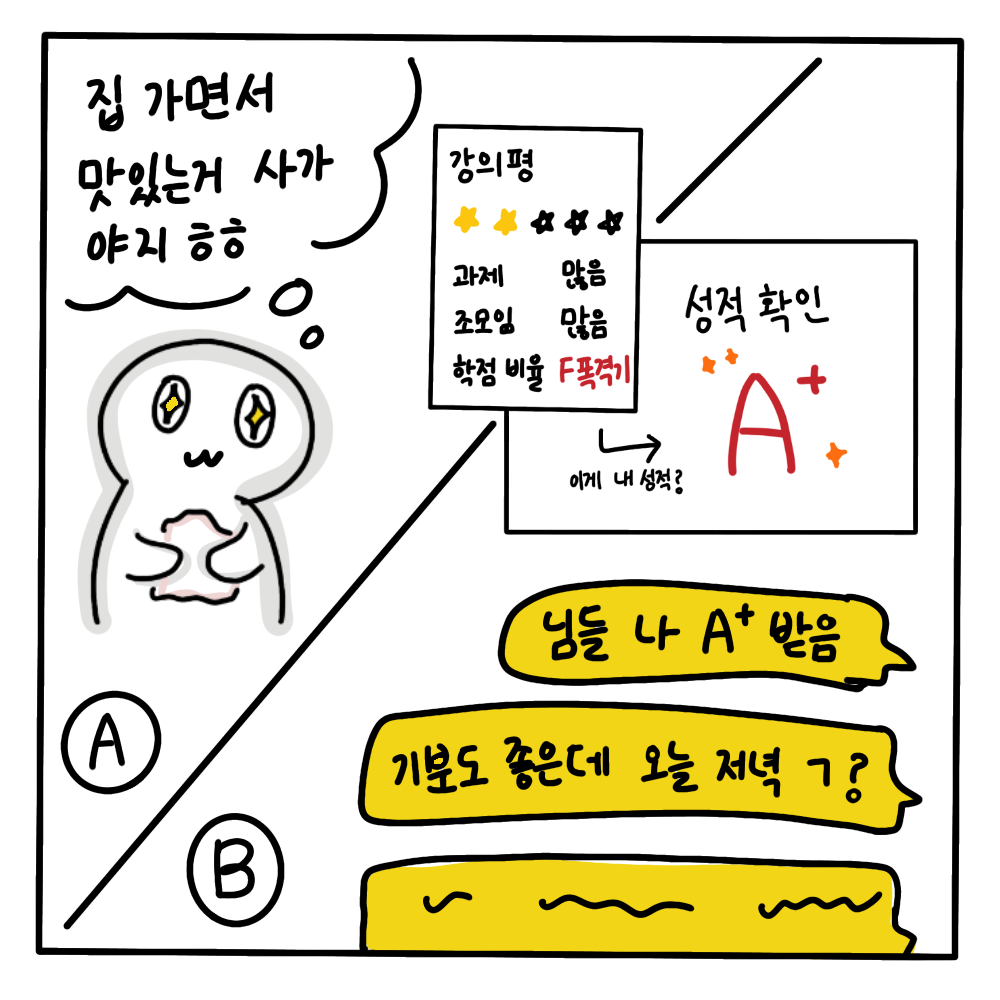 집 가면서
맛있는거 사가
야지 ㅎㅎ
강의평
과제 많음
조모임 많음
학점 비율 F폭격기
성적 확인
A+
이게 내 성적?
님들 나 A+ 받음
기분도 좋은데 오늘 저녁 ㄱ?
A
B